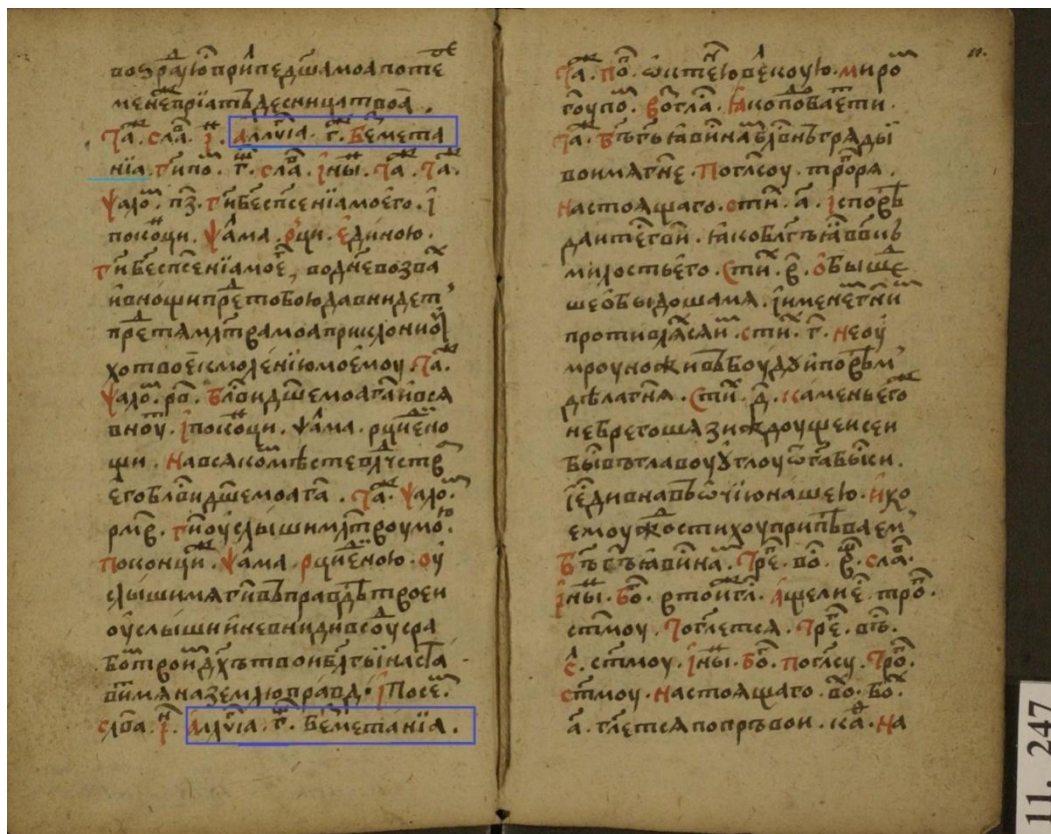 возрадꙋю при педшамоа по те
мене прїатъ десница твоѧ .
та . сла . і . аллꙋїа . г . Беꙁмета
нїа . гипо . г . сла . іны . та . та .
ѱало . пз . ги бе спсенїѧ моего . і
поконци . ѱама . рци . единою .
ги бе спсенїа мое , во дне возва
и внощи пре тобою да внидет
пре тѧ млтва моа приклони оу
хо твое к молению моемоу . та .
ѱало . рв . блви дше моа га и всѧ
внꙋ . і поконци . ѱама . рци ено
щи . на всѧком месте влчств
его блви дше моа га . та . ѱало .
рмв . ги оуслыши млтвоу мою .
поконци . ѱама . рци еною . оу
слыши мѧ ги въ правдѣ твоеи
оуслыши и не вниди в соу с ра
бо твои дхъ твои блгы наста
ви мѧ на землю правд . і Посе .
слва . і . аллꙋїа . г . беметанїа .
та . по . миро
гоу по . возгла . ꙗко побаети .
та . бгъ гь ꙗви на блвнъ грѧдыи
во имѧ гне . по глсоу . трорѧ .
настоѧщаго . сти . а . іспорѣ
даите гви . ꙗко блгъ ꙗ в вѣ
милость его . сти . в . обыше
ше обыдоша мѧ . і именетни
противлѧсѧи . сти . г . не оу
мроу но живъ боудоу и поорѣм
дѣла гнѧ . сти . д . камень его
не брегоша зижоущеи сеи
бы въ главоу оуглоу ѿ га бы си .
і е дивна въ очїю нашею . и ко
емоу жо стихоу припѣваем
бгъ гъ ꙗви на . тре . во . в . сла .
іны . бо . трѡ .
стмоу . тоглетсѧ . тре . въ .
с . стмоу . іны . бо . по глсу . тро .
стмоу . настоѧщаго . во . бо .
а . глетсѧ по първои . ка . на
11. 247